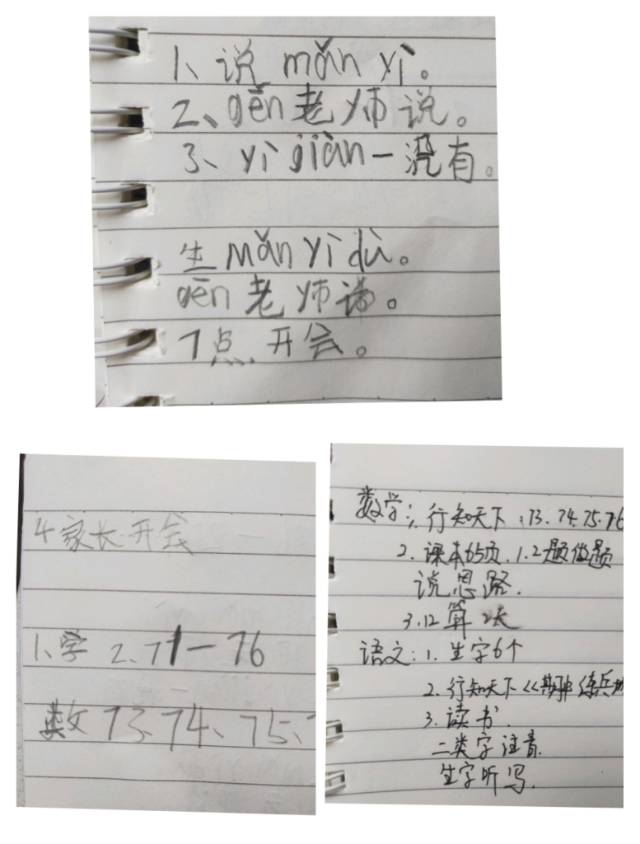 1、说 mǎn yì。
2、gēn老师说。
3、yì jiàn一没有。
生 mǎn yì dù。
gēn老师说。
7点、开会。
4家长开会
1、学 2、71一76
数 73、74、75、
数学:1、行知天下、73、74、75、76
2、课本65页、1、2题做题
说思路.
3、12算2天
语文:1、生字6个
2、行知天下《期 练兵
3、读书、
二类字注音.
生字听写.